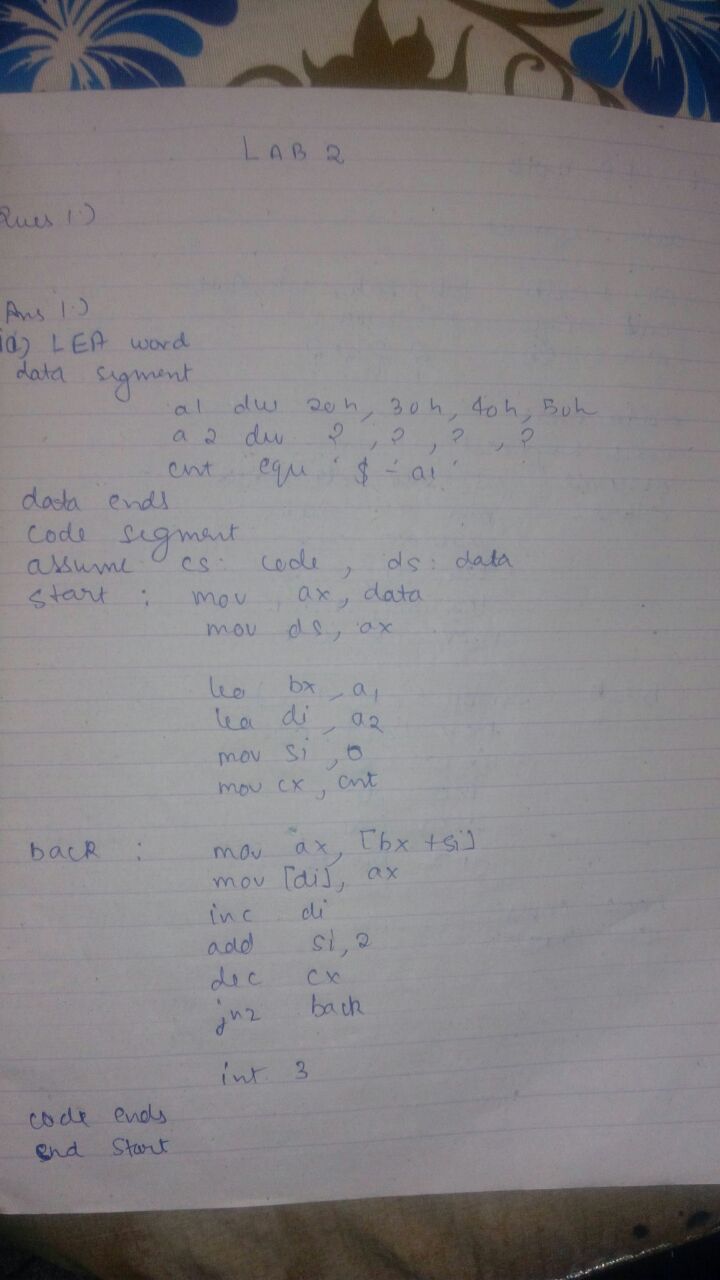 LAB 2
Ques 1.)
Ans 1.)
1a) LEA word
data segment
a1 dw 20h, 30h, 40h, 50h
a2 dw ?, ?, ?, ?
cnt equ $ - a1
data ends
code segment
assume cs: code, ds: data
start : mov ax, data
mov ds, ax
lea bx, a1
lea di, a2
mov si, 0
mov cx, cnt
back : mov ax, [bx + si]
mov [di], ax
inc di
add si, 2
dec cx
jnz back
int 3
code ends
end start